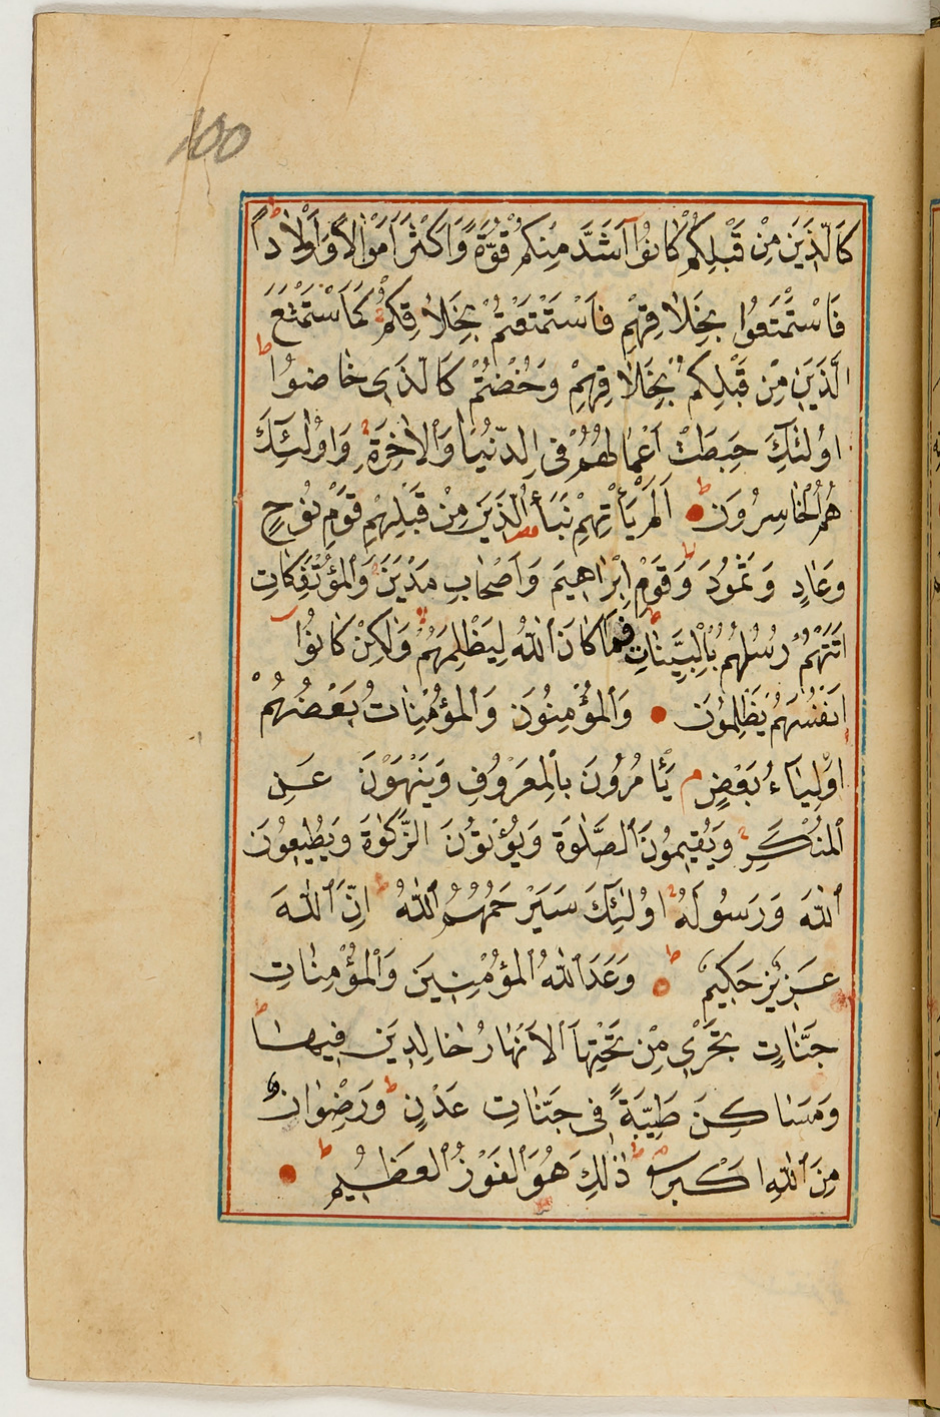 100
كَالَّذِينَ مِنْ قَبْلِكُمْ كَانُوا أَشَدَّ مِنْكُمْ قُوَّةً وَأَكْثَرَ أَمْوَالًا وَأَوْلَادًا
فَاسْتَمْتَعُوا بِخَلَاقِهِمْ فَاسْتَمْتَعْتُمْ بِخَلَاقِكُمْ كَمَا اسْتَمْتَعَ
الَّذِينَ مِنْ قَبْلِكُمْ بِخَلَاقِهِمْ وَخُضْتُمْ كَالَّذِي خَاضُوا
اُولٰئِكَ حَبِطَتْ اَعْمَالُهُمْ فِي الدُّنْيَا وَالْاٰخِرَةِ وَاُولٰئِكَ
هُمُ الْخَاسِرُونَ اَلَمْ يَأْتِهِمْ نَبَأُ الَّذِينَ مِنْ قَبْلِهِمْ قَوْمِ نُوحٍ
وَعَادٍ وَثَمُودَ وَقَوْمِ اِبْرَاهِيمَ وَاَصْحَابِ مَدْيَنَ وَالْمُؤْتَفِكَاتِ
اَتَتْهُمْ رُسُلُهُمْ بِالْبَيِّنَاتِ فَمَا كَانَ اللّٰهُ لِيَظْلِمَهُمْ وَلٰكِنْ كَانُوا
اَنْفُسَهُمْ يَظْلِمُونَ وَالْمُؤْمِنُونَ وَالْمُؤْمِنَاتُ بَعْضُهُمْ
اَوْلِيَاءُ بَعْضٍ يَأْمُرُونَ بِالْمَعْرُوفِ وَيَنْهَوْنَ عَنِ
الْمُنْكَرِ وَيُقِيمُونَ الصَّلٰوةَ وَيُؤْتُونَ الزَّكٰوةَ وَيُطِيعُونَ
اللّٰهَ وَرَسُولَهُ اُولٰئِكَ سَيَرْحَمُهُمُ اللّٰهُ اِنَّ اللّٰهَ
عَزِيزٌ حَكِيمٌ وَعَدَ اللّٰهُ الْمُؤْمِنِينَ وَالْمُؤْمِنَاتِ
جَنَّاتٍ تَجْرِي مِنْ تَحْتِهَا الْاَنْهَارُ خَالِدِينَ فِيهَا
وَمَسَاكِنَ طَيِّبَةً فِي جَنَّاتِ عَدْنٍ وَرِضْوَانٌ
مِنَ اللّٰهِ اَكْبَرُ ذٰلِكَ هُوَ الْفَوْزُ الْعَظِيمُ